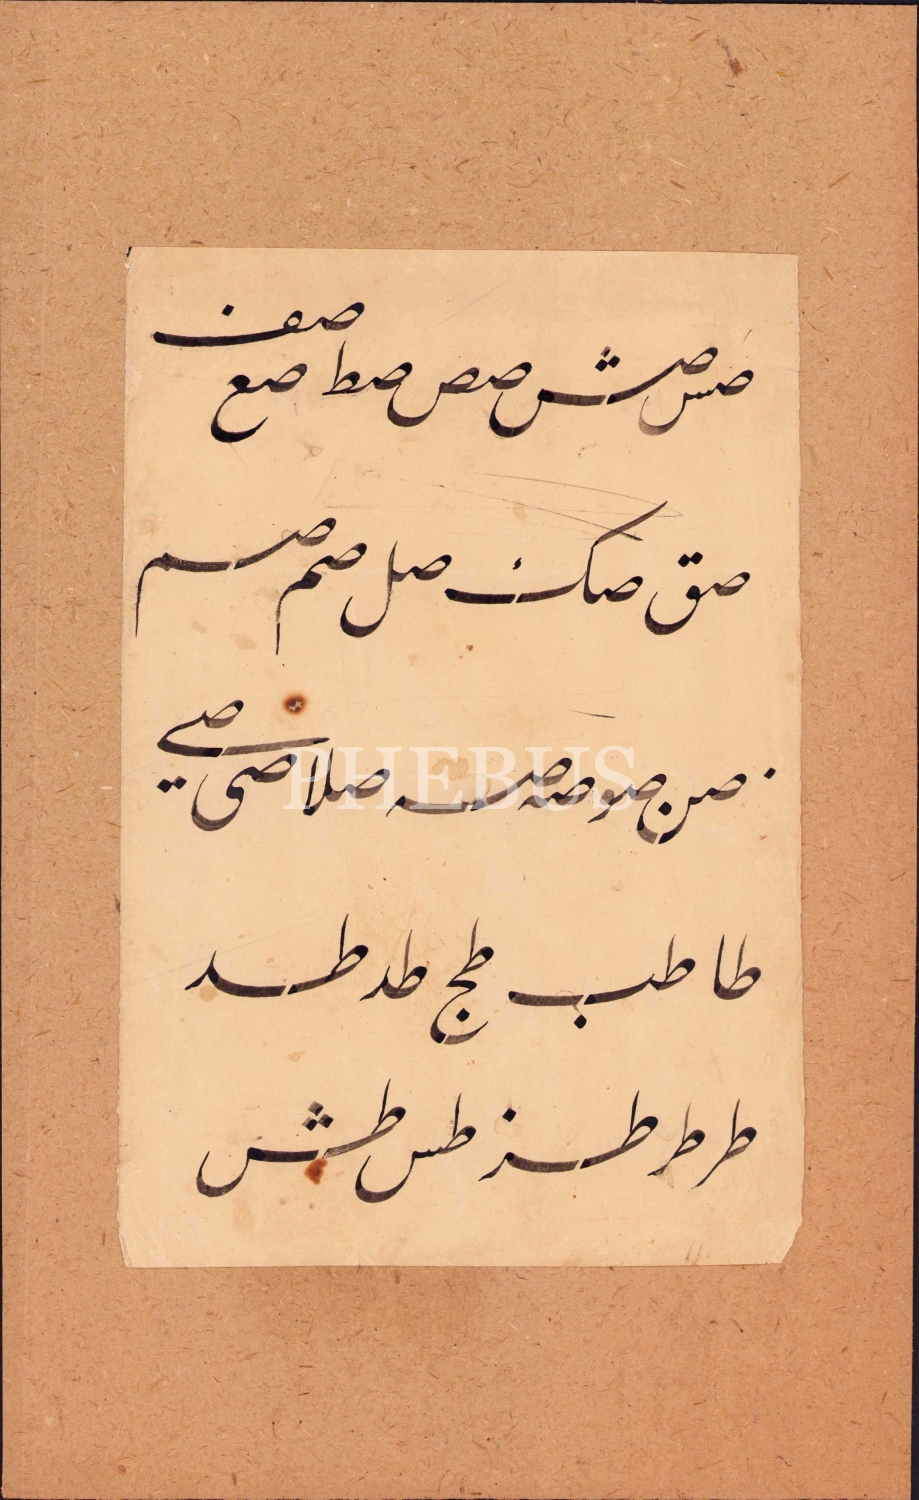 صس صش صص صط صع صف
صق صك صل صم صم
صن صو صه صه صلا صى صے
PHEBUS
طا طب طج طد طد
طر طر طز طس طش